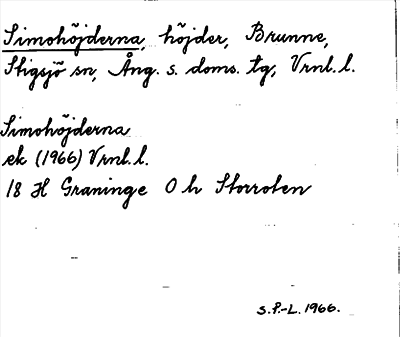 Simohöjderna, höjder, Brunne,
Stigsjö sn, Ång. s. doms. tg, Vrnl. l.
Simohöjderna
ek (1966) Vrnl. l.
18 H Graninge O h Storroten
S.P.-L. 1966.